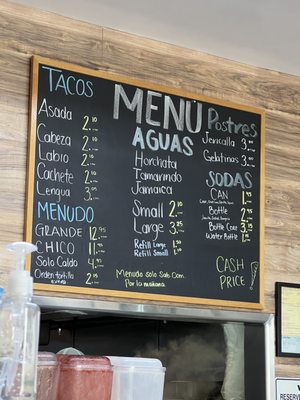 MENÚ
TACOS
Asada 2.10
Cabeza 2.10
Labio 2.10
Cachete 2.10
Lengua 3.05
MENUDO
GRANDE 12.95
CHICO 11.95
Solo Caldo 4.95
Orden tortilla 2.95
extra
AGUAS
Horchata
Tamarindo
Jamaica
Small 2.10
Large 3.25
Refill Large 1.50
Refill Small 1.10
Menudo solo Sab Dom
Por la mañana
Postres
Jericalla 3.00
Gelatinas 3.00
SODAS
CAN
Bottle
Bottle Coke
Water Bottle
CASH
PRICE
RESERVE